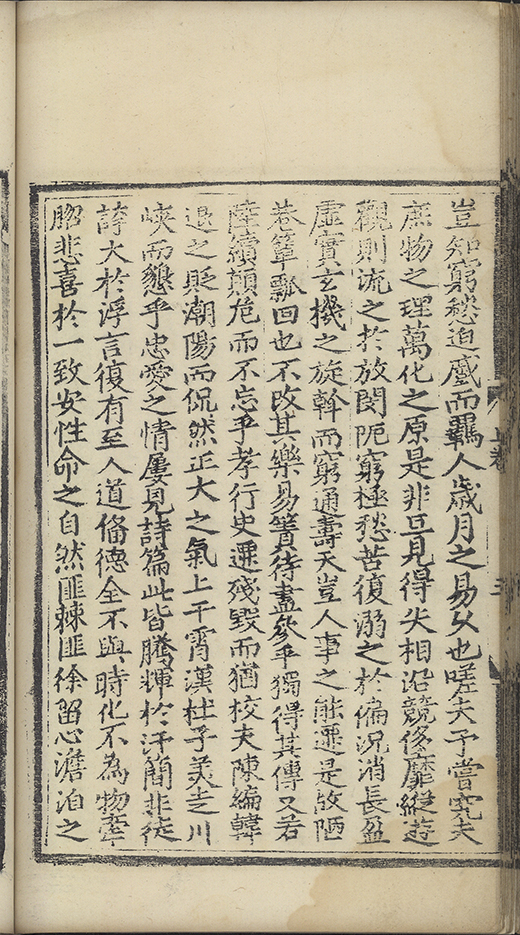 豈知窮愁迫蹙而羈人歲月之易久也嗟夫予嘗究夫
庶物之理萬化之原是非互見得失相沿競侈靡縱遊
觀則流之於放閔阨窮極愁苦復溺之於偏況消長盈
虛實玄機之旋斡而窮通壽夭豈人事之能遷是故陋
巷簞瓢回也不改其樂易簀待盡參乎獨得其傳又若
陸續顛危而不忘乎孝行史遷殘毀而猶校夫陳編韓
退之貶潮陽而侃然正大之氣上干霄漢杜子美走川
峽而懇乎忠愛之情屢見詩篇此皆騰輝於汗簡非徒
誇大於浮言復有至人道俻德全不與時化不為物牽
悲喜於一致安性命之自然匪棘匪徐留心澹泊之
上卷